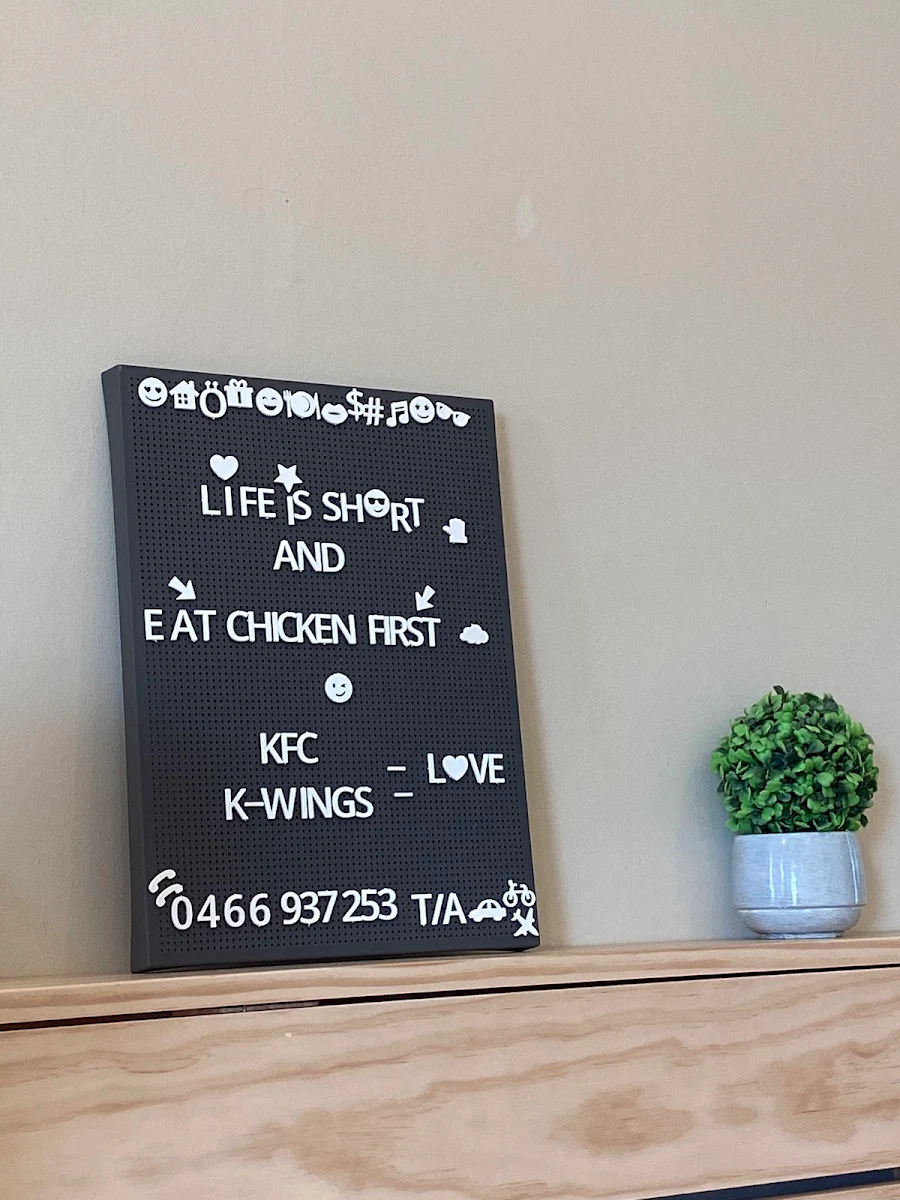 $#
LIFE IS SHORT
AND
EAT CHICKEN FIRST
KFC
K-WINGS = LOVE
0466 937253 T/A